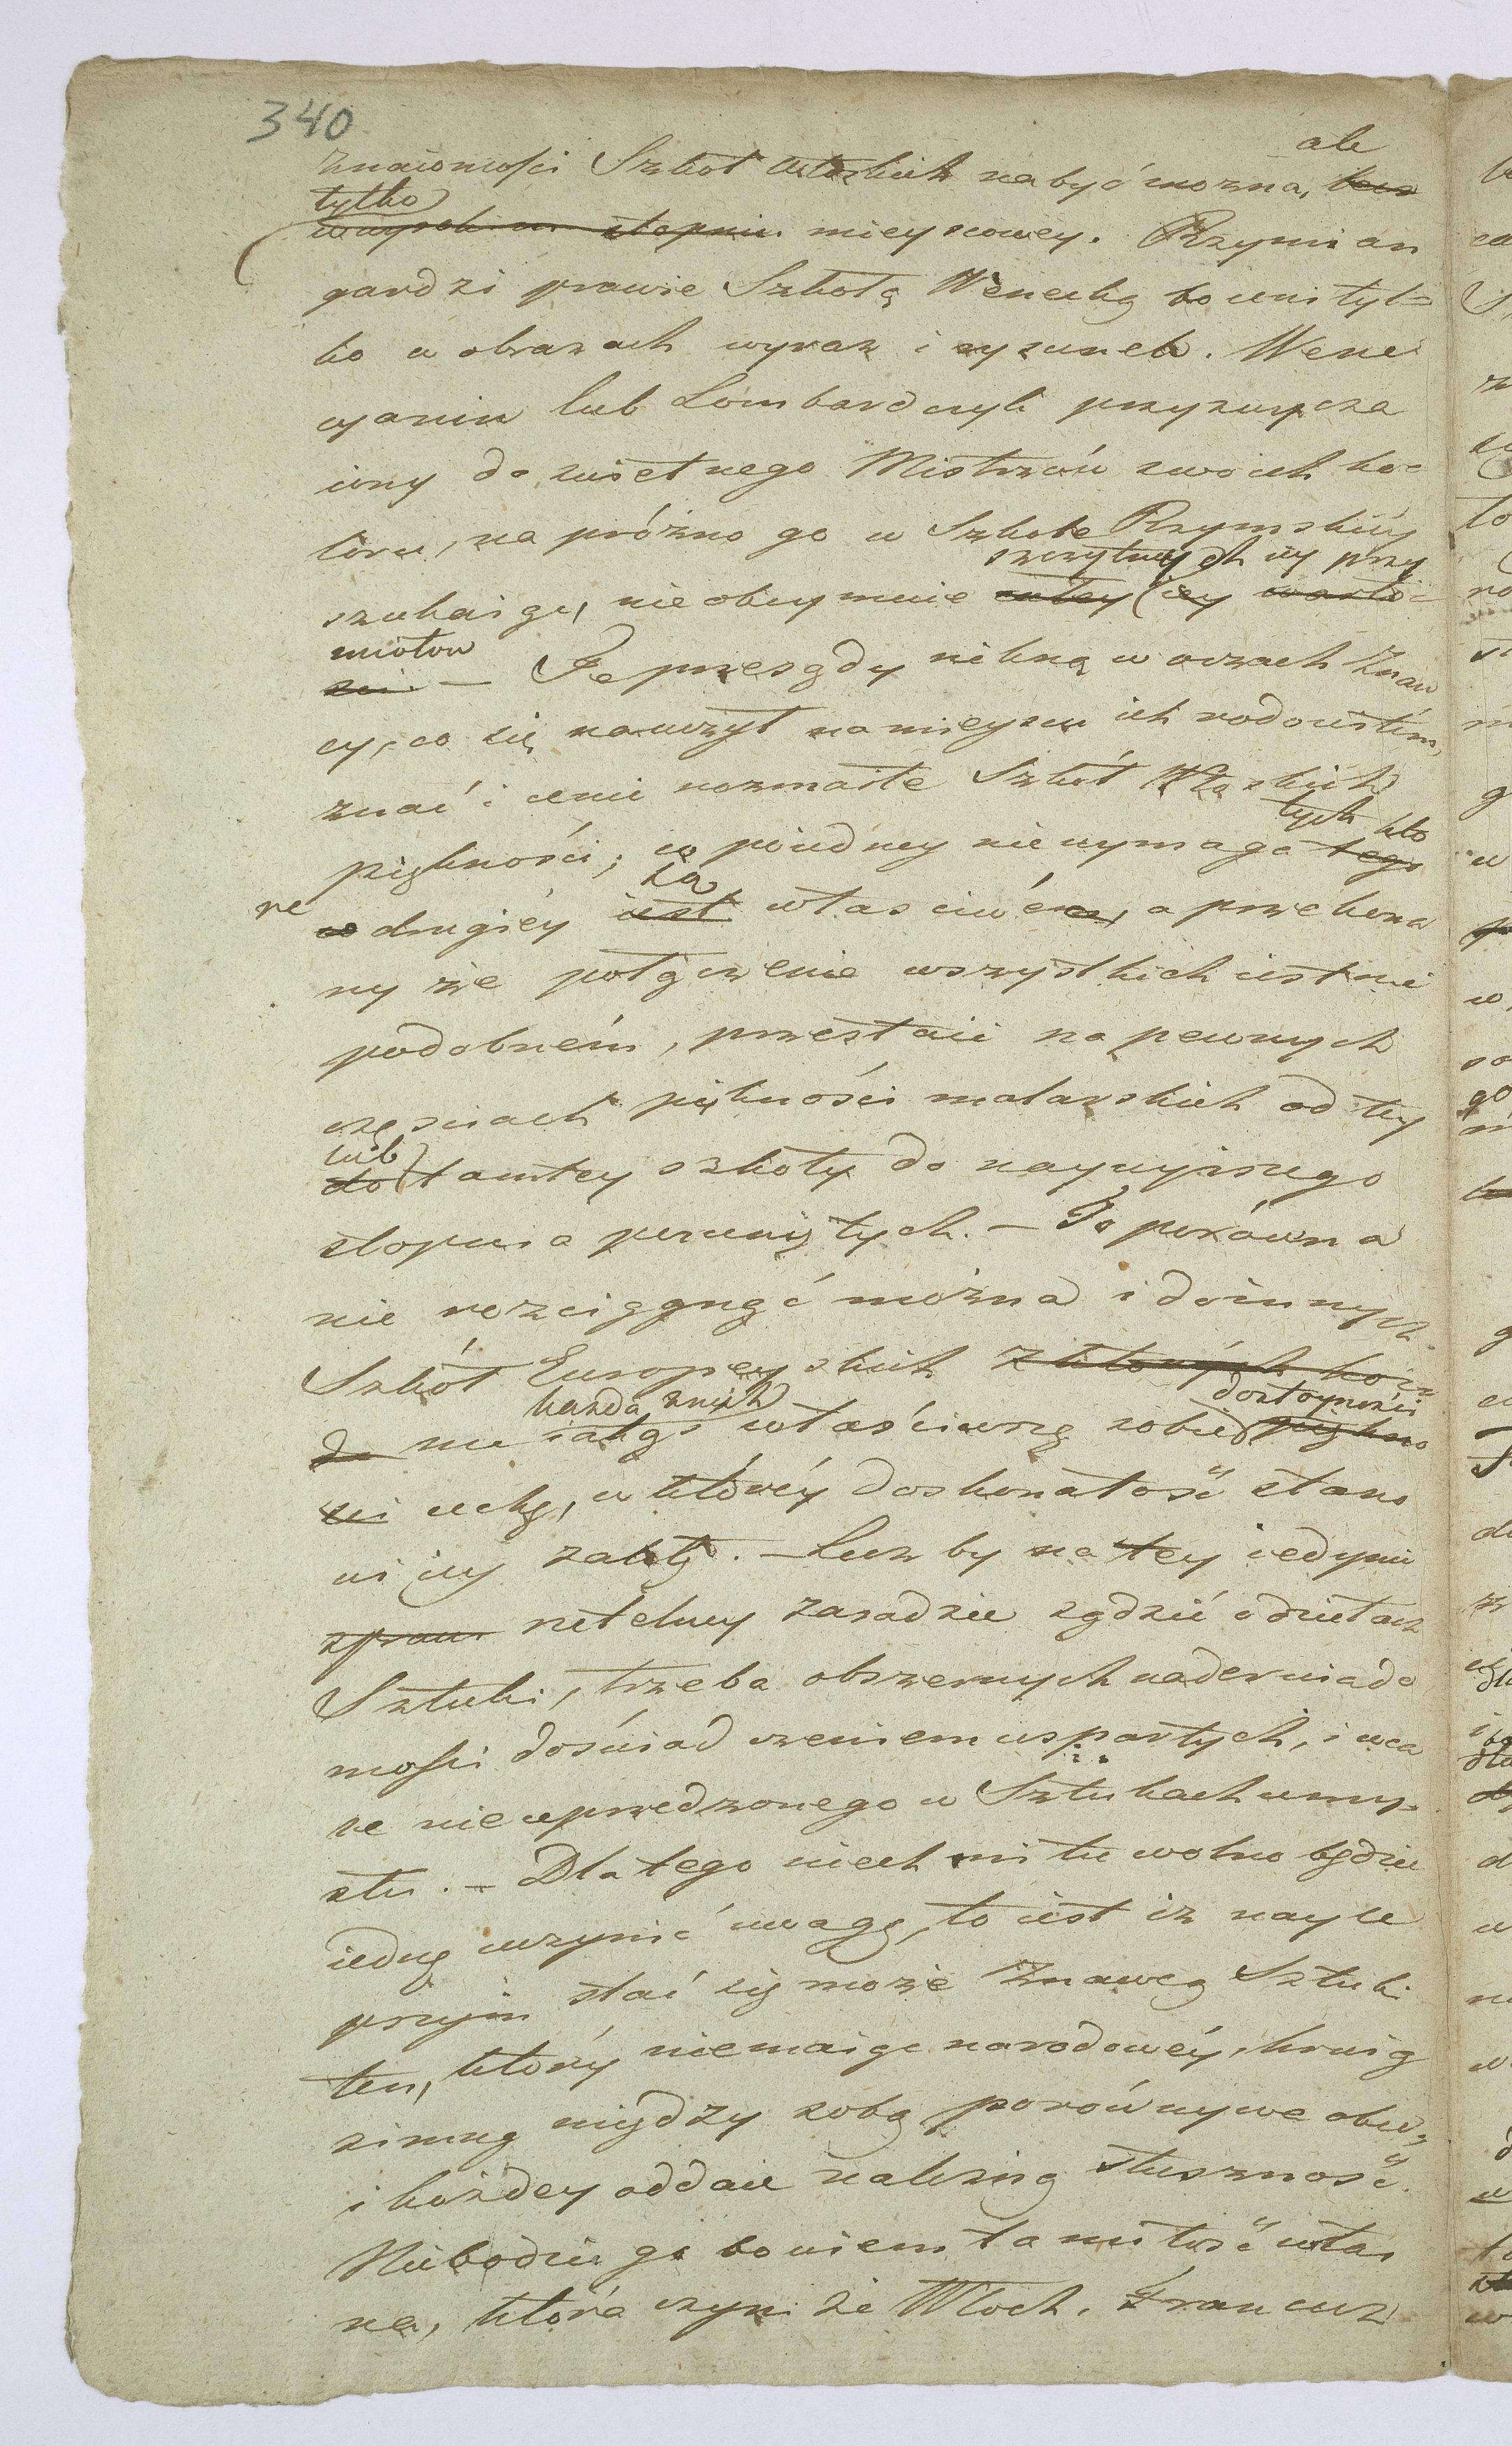 340
znaiomości Szkół Włoskich nabyć można, ale
tylko
w wysokim stopniu mieyscowey. Rzymian
gardzi prawie Szkołą Wenecką bo ceni tyl=
ko w obrazach wyraz i rysunek. Wene
cyanin lub Lombardczyk przyzwycza
iony do świetnego Mistrzów swoich ko=
loru, na próżno go w Szkole Rzymskiéy
szczytnych iey przy
szukaiąc, nieobeymuie całey iey wartoś=
miotow
sci — Te przesądy nikną w oczach Znaw
cy, co się nauczył na mieyscu ich rodowitém,
znać i cenić rozmaite Szkół Włoskich
tych kto
piękności; co poiedney niewymaga tego
są
re
co drugiéy iest właściwém, a przekona
ny że połączenie wszystkich iest nie
podobném, przestaie na pewnych
częściach piękności malarskich od tey
lub
do tamtey szkoły do naywyższego
stopnia posuniętych. — To porówna
nie rozciągnąć można i do innych
Szkół Europeyskich z których każ
każda z nich dostoyności
da ma iakąś właściwszą sobie piękno
sci cechę, w któréy doskonałość stano
wi iey zaletę. — Lecz by na tey iedynie
spraw rzetelney zasadzie sądzić o dziełach
Sztuki, trzeba obszernych nader wiado
mości doświadczeniem wspartych, i wca
le nieuprzedzonego w Sztukach umy=
słu. — Dla tego niech mi tu wolno będzie
iednę uczynić uwagę, to iest iż nayle
przym stać się może Znawcą Sztuki
ten, który niemaiąc narodowéy, krwią
zimną między sobą porównywa obce,
i każdey oddaie należną słuszność.
Niebodzie go bowiem ta miłość włas
na, która czyni że Włoch, Francuz